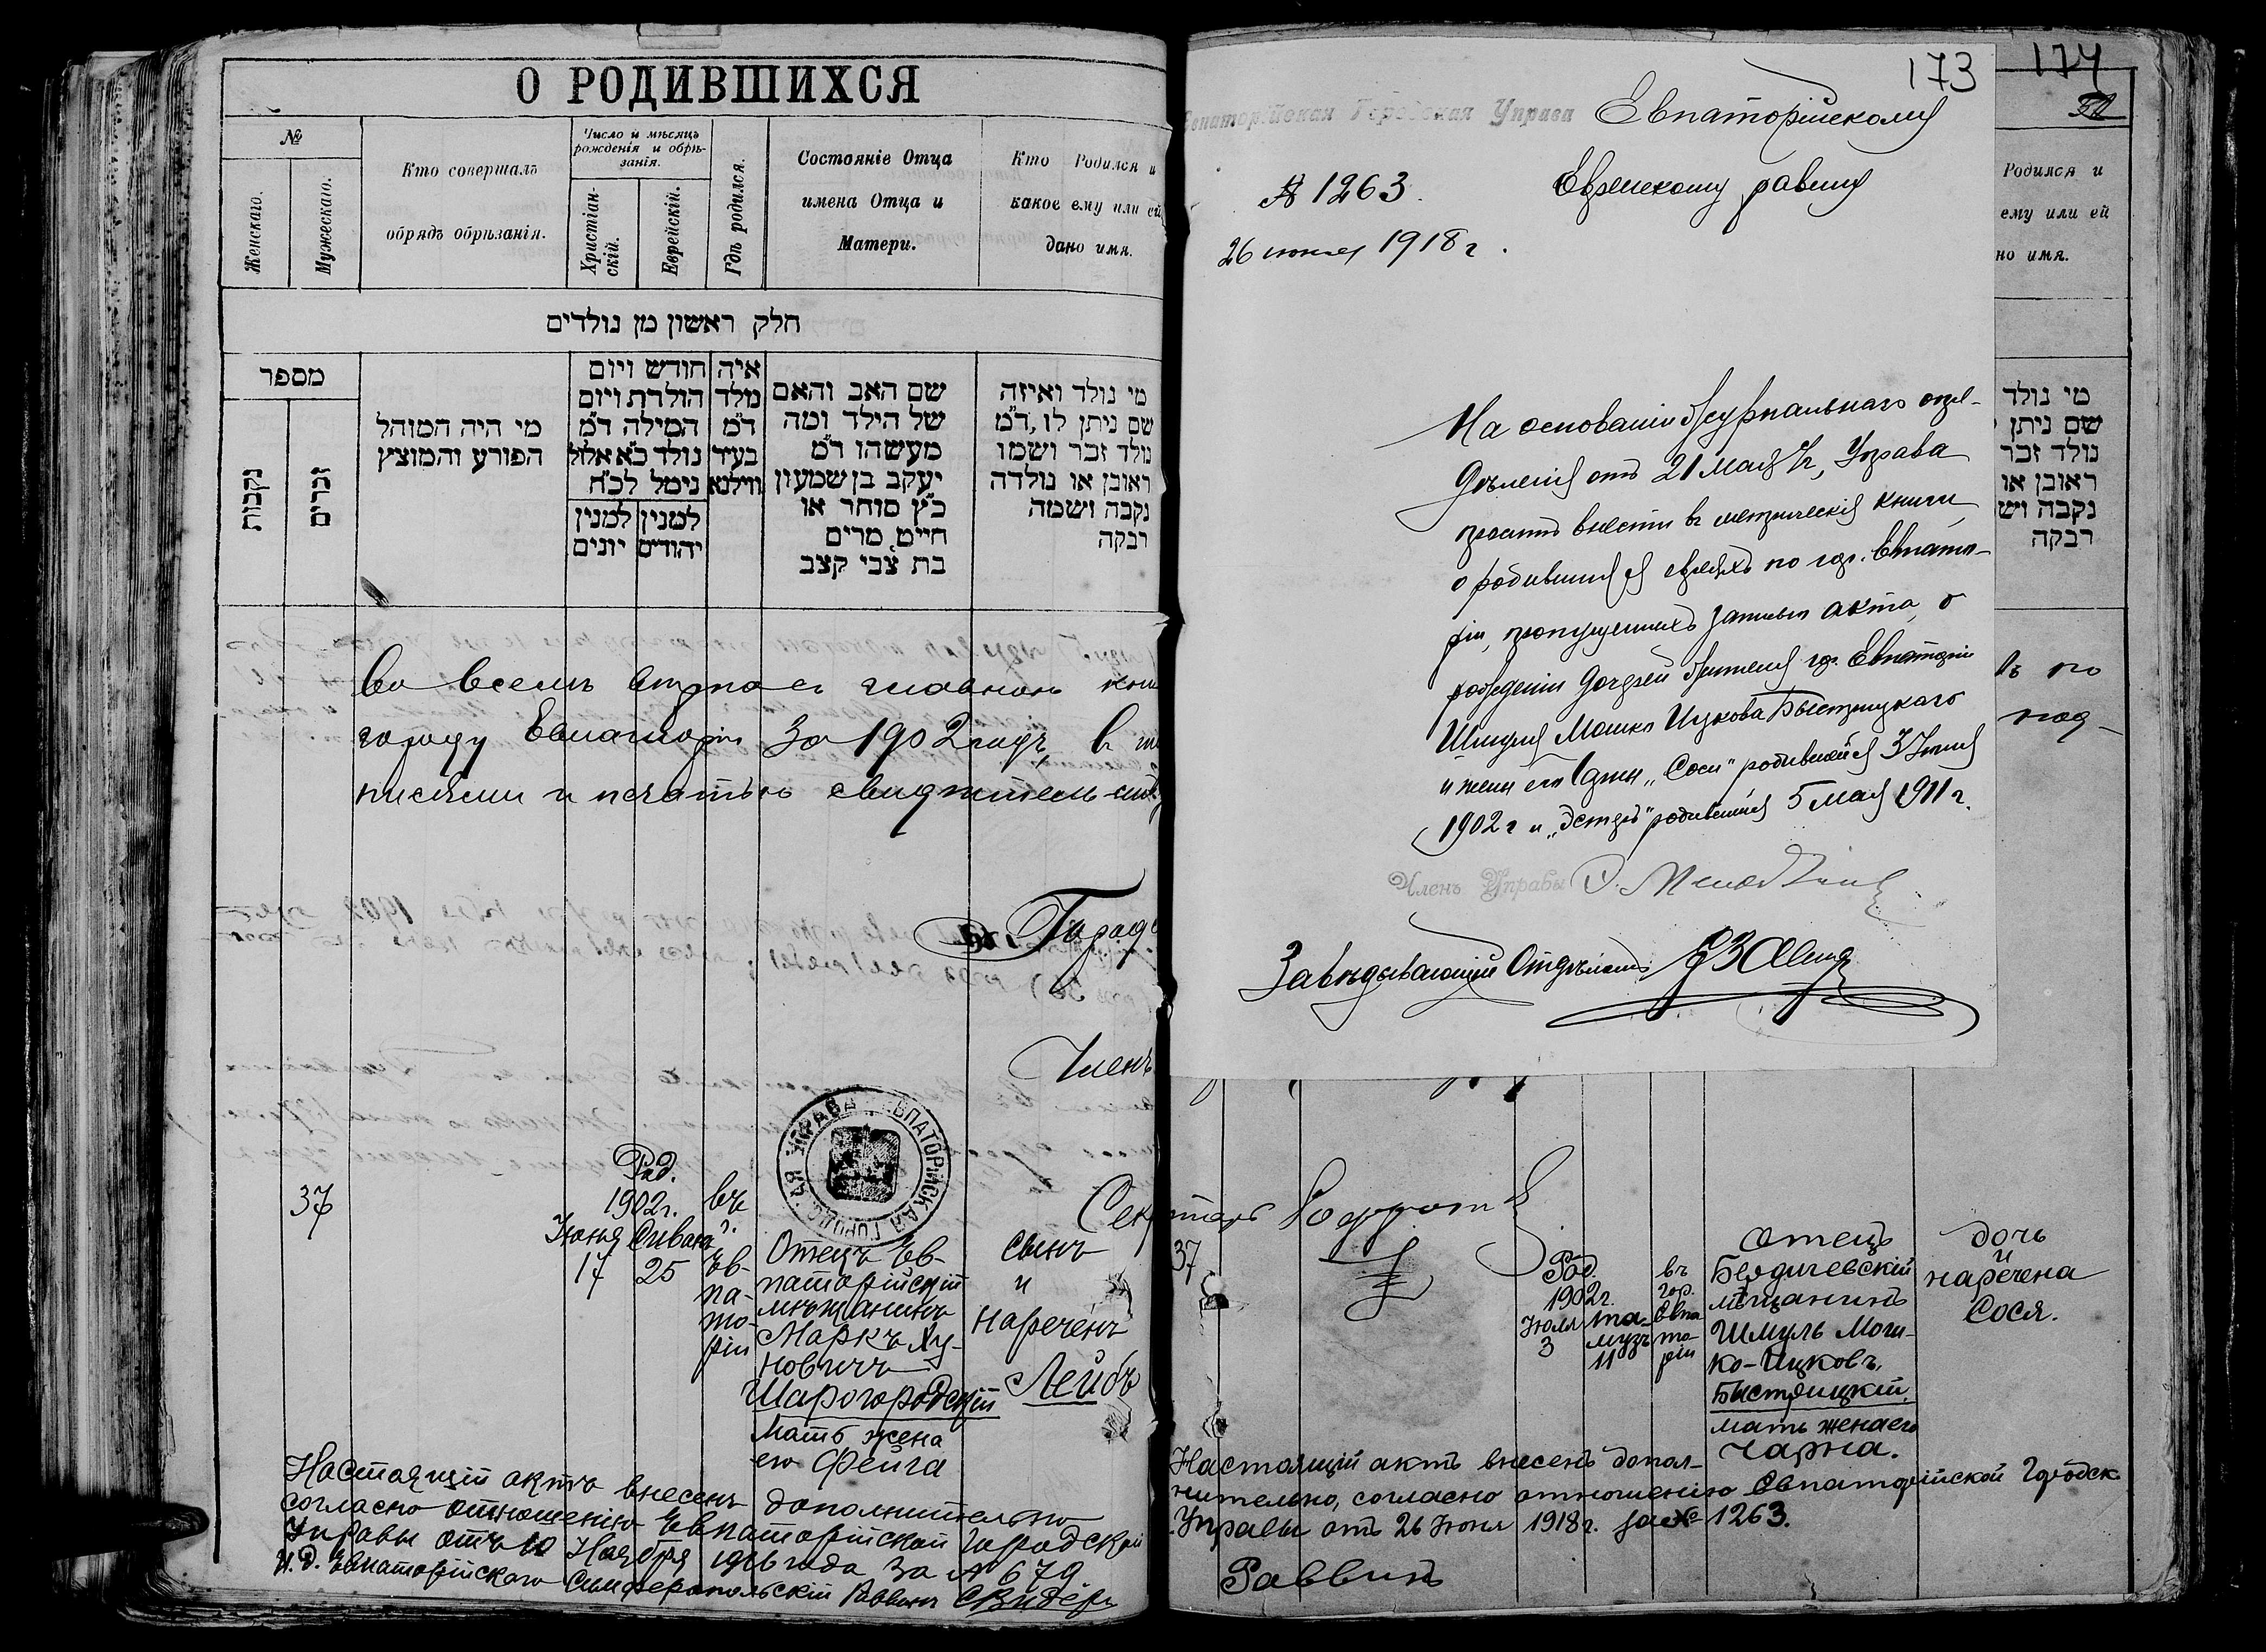 О РОДИВШИХСЯ
№
Женскаго.
Мужескаго.
Кто совершалъ
обрядъ обрѣзанія.
Число и мѣсяцъ
рожденія и обрѣ-
занія.
Христіан-
скій.
Еврейскій.
Гдѣ родился.
Состояніе Отца
имена Отца и
Матери.
Кто Родился и
какое ему или ей
дано имя.
חלק ראשון מן נולדים
מספר
נקבות
זכרים
מי היה המוהל
הפורע והמוציץ
חודש ויום
הולדת ויום
המילה ד״מ
נולד כ״א אלול
נימל לכ״ח
למנין
יהודים
למנין
יונים
איה
נולד
ד״מ
בעיר
ווילנא
שם האב והאם
של הילד ומה
מעשהו ד״מ
יעקב בן שמעון
כ״ץ סוחר או
חייט, מרים
בת צבי קצב
מי נולד ואיזה
שם ניתן לו, ד״מ
נולד זכר ושמו
ראובן או נולדה
נקבה ושמה
רבקה
Во всемъ вѣрна съ главною кни
городу Евпаторіи За 1902 годъ, в
писями и печатью свидѣтель
Город
Членъ
ЕВПАТОРІЙСКАЯ ГОРОДС АЯ УПРАВА
Секретарь
37
Род.
1902г.
Іюня Сивана
17 25
въ
г.
Ев-
па-
то-
ріи
Отецъ Ев-
паторійскій
мѣщанинъ
Маркъ Ху-
новичъ
Шарогородскій
Мать жена
его Фейга
Сынъ
и
нареченъ
Лейбъ
Настоящій актъ внесенъ дополнительно
согласно отношенію Евпаторійской Городской
Управы отъ 10 Ноября 1916 года за № 679
И.д. Евпаторійскаго Симферопольскій Раввинъ
173
Евпаторійская Городская Управа
Евпаторійскому
Еврейскому равину
№ 1263.
26 июня 1918 г.
На основаніи журнальнаго опре-
дѣленія отъ 21 Мая с/г, Управа
проситъ внести въ метрическія книги
о родившихся евреяхъ по гор. Евпато-
ріи, пропущенныхъ записью акта о
рожденіи дочерей жителя гор. Евпаторіи
Шмуля Мошко Ицкова Быстрицкаго
и жены его Чарны „Соси" родившейся 3 Іюля
1902 г и „Эстеръ" родившейся 5 Мая 1911 г.
Членъ Управы
Завѣдывающій Отдѣломъ
174
Родился и
ему или ей
но имя.
מי נולד
שם ניתן
נולד זכר
ראובן או
נקבה וש
רבקה
ъ по
под-
37
Род.
1902г.
Іюля
3
Та-
музъ
11
въ
гор.
Евпа
то-
ріи
Отецъ
Бердичевскій
мѣщанинъ
Шмуль Мош-
ко-Ицковъ
Быстрицкій,
мать жена его
Чарна.
дочь
и
наречена
Сося.
Настоящій актъ внесенъ допол-
нительно, согласно отношенію Евпаторійской Городск
Управы отъ 26 Іюня 1918г. за № 1263.
Раввинъ